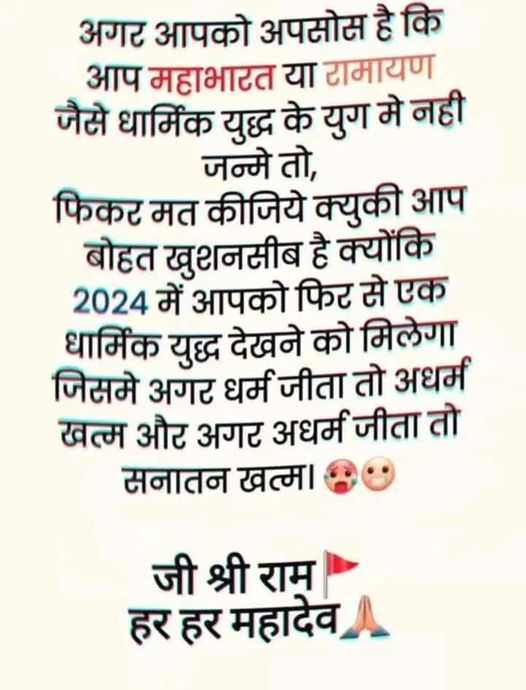 अगर आपको अपसोस है कि
आप महाभारत या रामायण
जैसे धार्मिक युद्ध के युग मे नही
जन्मे तो,
फिकर मत कीजिये क्युकी आप
बोहत खुशनसीब है क्योंकि
2024 में आपको फिर से एक
धार्मिक युद्ध देखने को मिलेगा
जिसमे अगर धर्म जीता तो अधर्म
खत्म और अगर अधर्म जीता तो
सनातन खत्म। 🥵😬
जी श्री राम🚩
हर हर महादेव🙏